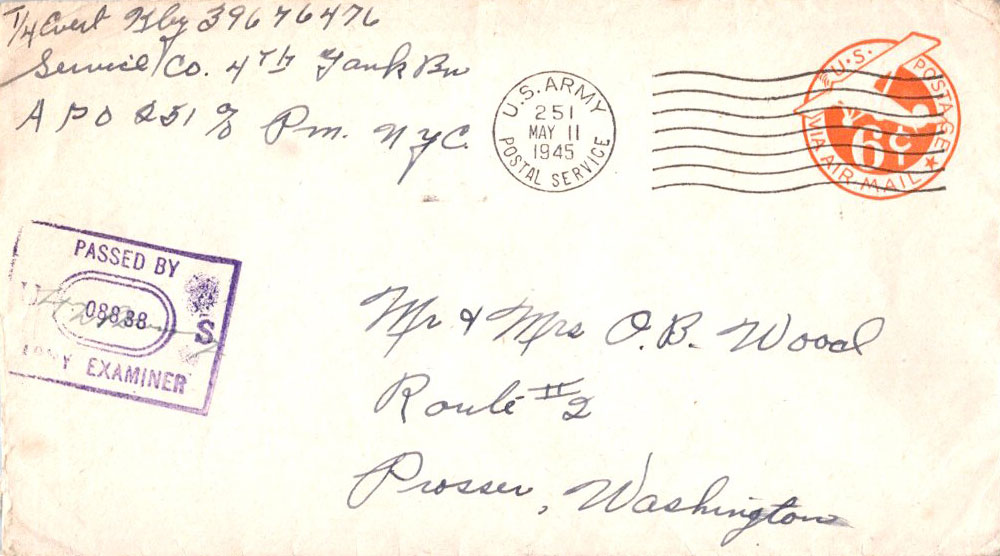 T/4 Evert Kby 39676476
Service Co. 4TH Tank Bn
APO 251 c/o Pm. NYC.
U.S. ARMY
251
MAY 11
1945
POSTAL SERVICE
U.S. POSTAGE
6¢
VIA AIR MAIL
PASSED BY
08838
S
ARMY EXAMINER
Mr & Mrs O.B. Wood
Route #2
Prosser, Washington